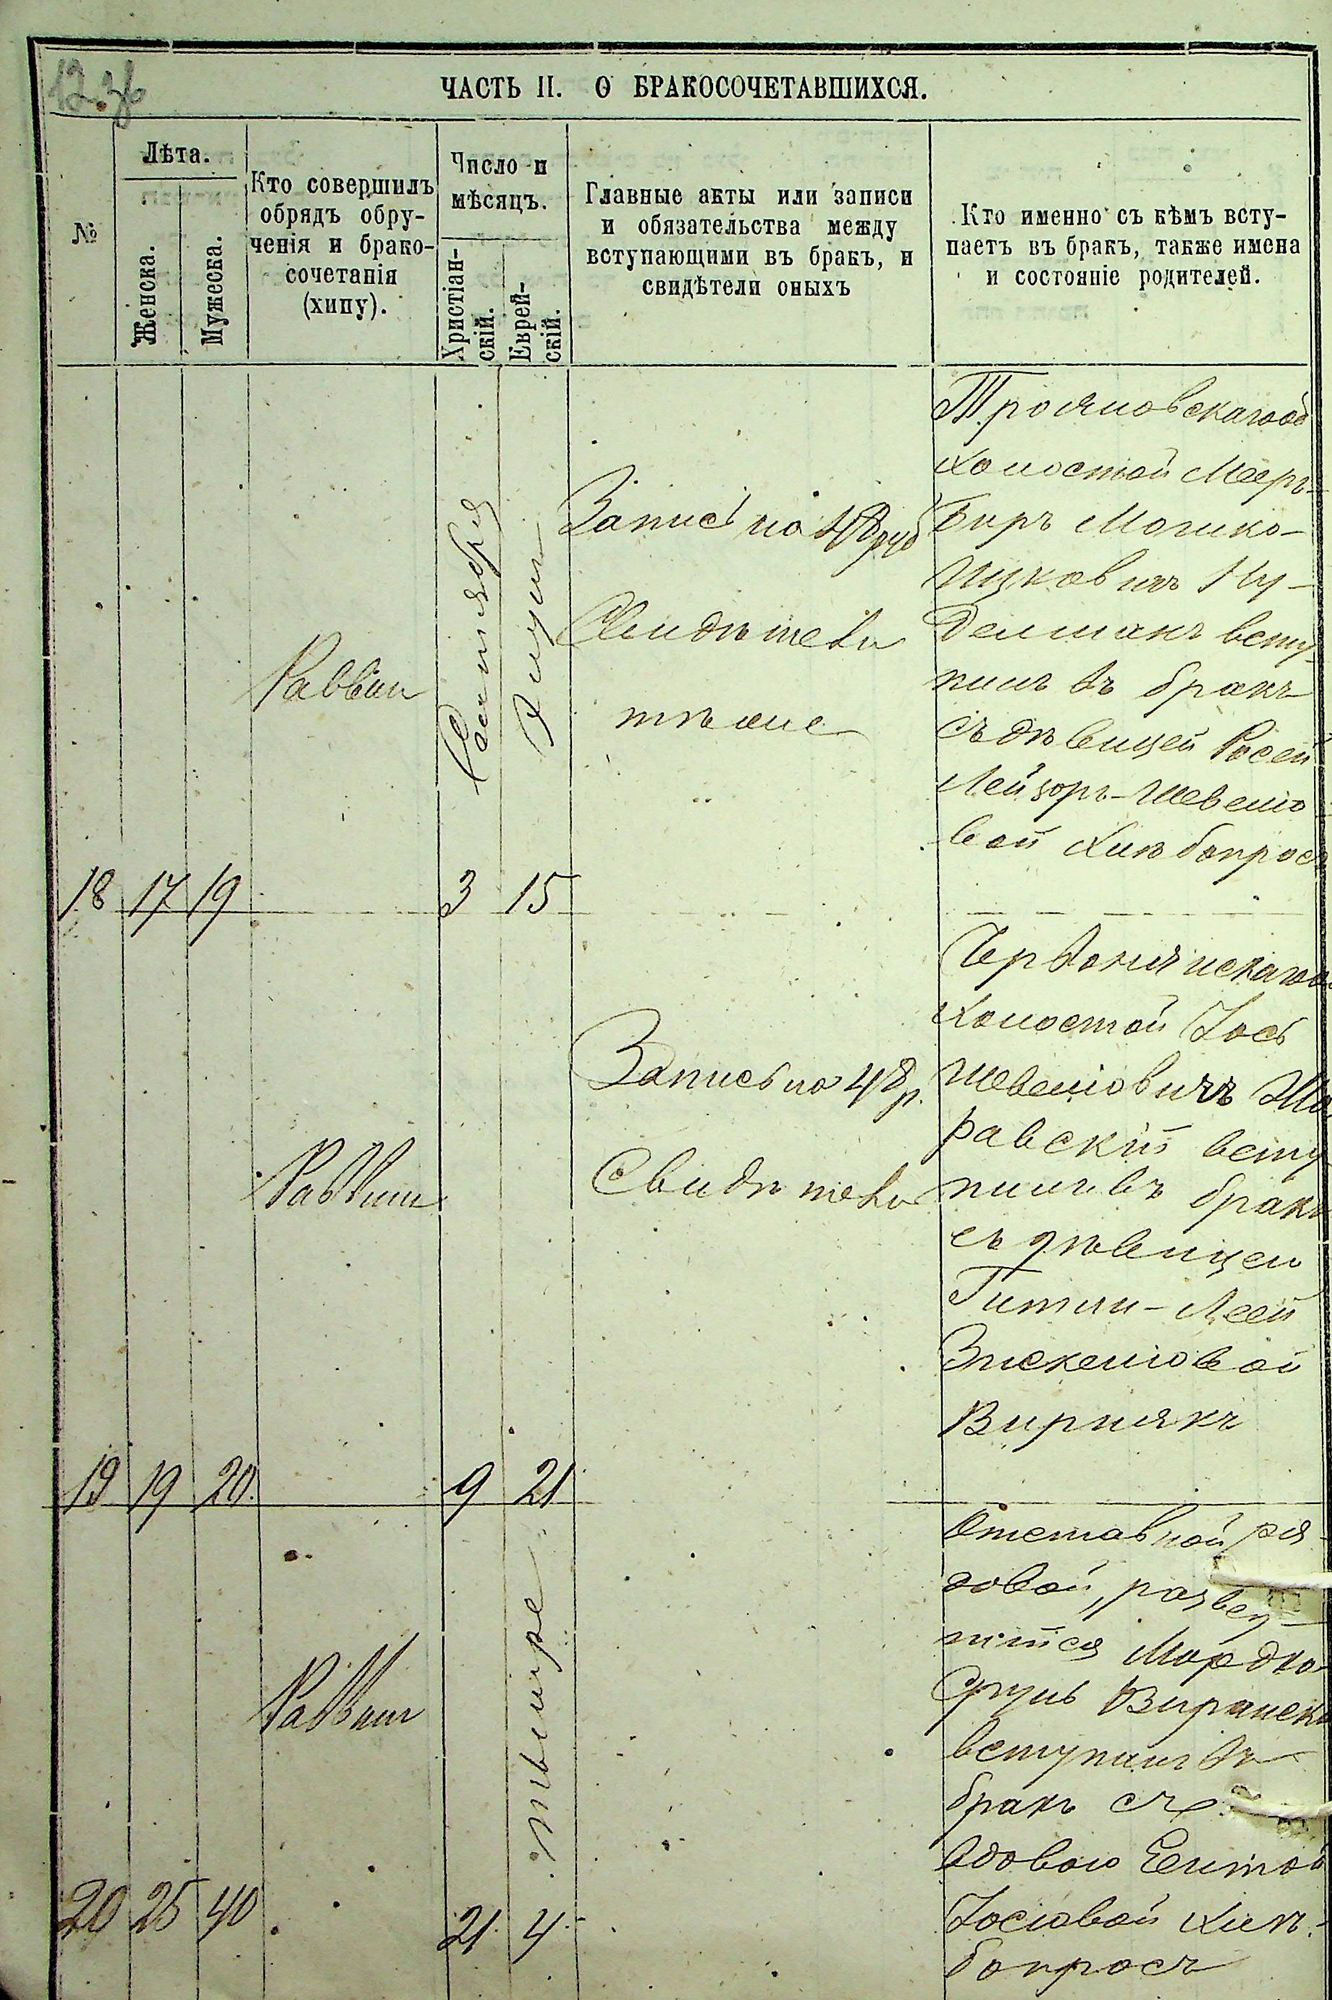 12 36
ЧАСТЬ II. О БРАКОСОЧЕТАВШИХСЯ.
№
Лѣта.
Женска.
Мужеска.
Кто совершилъ
обрядъ обру-
ченія и брако-
сочетанія
(хипу).
Число и
мѣсяцъ.
Христіан-
скій.
Еврей-
скій.
Главные акты или записи
и обязательства между
вступающими въ бракъ, и
свидѣтели оныхъ
Кто именно съ кѣмъ всту-
паетъ въ бракъ, также имена
и состояніе родителей.
18 17 19
Раввин
Сентября
3
Элулъ
15
Запись на 48 руб
Свидѣтели
тѣ же
Трояновскаго об
холостой Меер-
Беръ Мошко-
Ицковичъ Ну-
делманъ всту-
пилъ въ бракъ
съ дѣвицей Росей
Лейзоръ-Шевело
вой Хинбопросъ
19 19 20
Раввин
9 21
Запись на 48 р.
Свидѣтели
холостой Іось
Шевелювичъ
равскій всту
пилъ въ бракъ
съ дѣвицей
Гитли-Леей
Зискелювой
Вирнякъ
20 25 40
Раввин
21
тышре
4
Отставной ря-
довой, развед-
шійся Мордко-
Сруль
вступилъ въ
бракъ съ
вдовою Ентой
Іосіовой Хин-
бопросъ